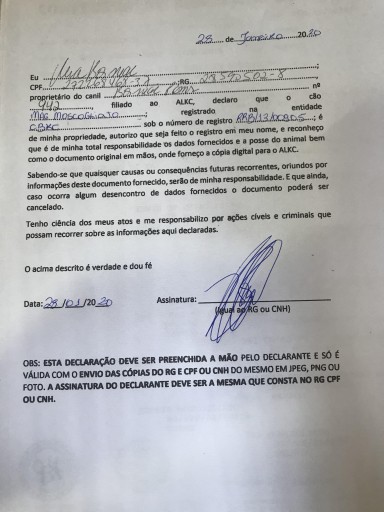 28 de Janeiro 2020
Eu
CPF ;RG
proprietário do canil nº
942, filiado ao ALKC, declaro que o cão
registrado na entidade
CBKC sob o número de registro ; é
de minha propriedade, autorizo que seja feito o registro em meu nome, e reconheço
que é de minha total responsabilidade os dados fornecidos e a posse do animal bem
como o documento original em mãos, onde forneço a cópia digital para o ALKC.
Sabendo-se que quaisquer causas ou consequências futuras recorrentes, oriundos por
informações deste documento fornecido, serão de minha responsabilidade. E que ainda,
caso ocorra algum desencontro de dados fornecidos o documento poderá ser
cancelado.
Tenho ciência dos meus atos e me responsabilizo por ações cíveis e criminais que
possam recorrer sobre as informações aqui declaradas.
O acima descrito é verdade e dou fé
Data: 28/01/2020 Assinatura:
(Igual ao RG ou CNH)
OBS: ESTA DECLARAÇÃO DEVE SER PREENCHIDA A MÃO PELO DECLARANTE E SÓ É
VÁLIDA COM O ENVIO DAS CÓPIAS DO RG E CPF OU CNH DO MESMO EM JPEG, PNG OU
FOTO. A ASSINATURA DO DECLARANTE DEVE SER A MESMA QUE CONSTA NO RG CPF
OU CNH.